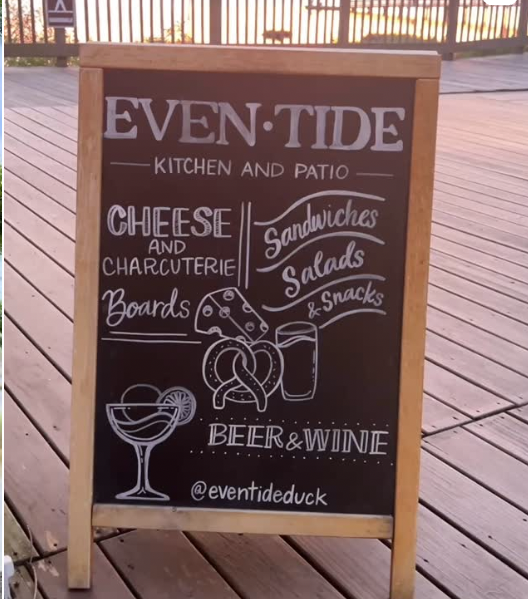 EVEN·TIDE
KITCHEN AND PATIO
CHEESE
AND
CHARCUTERIE
Boards
Sandwiches
Salads
& Snacks
BEER & WINE
@eventideduck